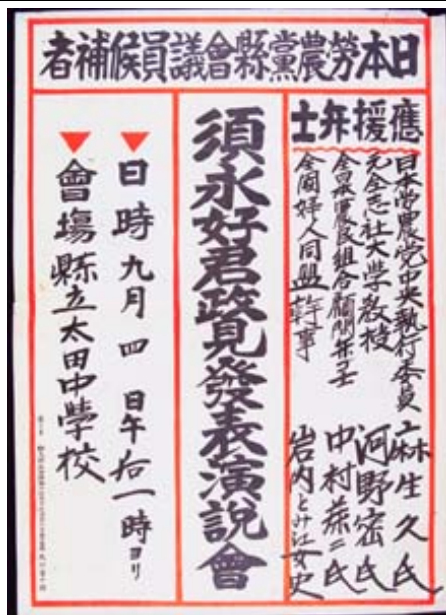 日本勞農黨縣會議員候補者
應援弁士
日本労農党中央執行委員 麻生久氏
元仝志社大学教授 河野密氏
全日農民組合顧問弁ゴ士 中村 二氏
全国婦人同盟幹事 岩内とみ江女史
須永好君政見發表演說會
▼日時 九月四日午后一時ヨリ
▼會場 縣立太田中學校